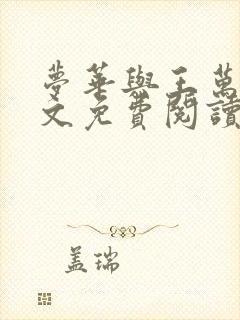 夢華與王萬
文免費閱讀
盖瑞